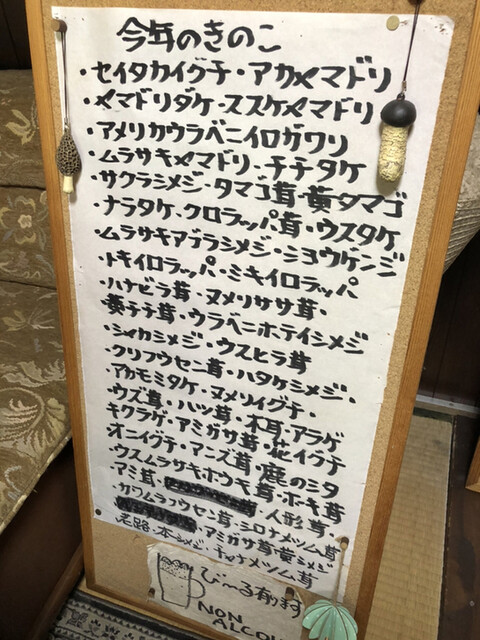 今年のきのこ
・セイタカイグチ・アカヤマドリ
・ヤマドリダケ・ススケヤマドリ
・アメリカウラベニイロガワリ
・ムラサキヤマドリ・チチタケ
・サクラシメジ・タマゴ茸・黄タマゴ
・ナラタケ・クロラッパ茸・ウスタケ
・ムラサキアブラシメジ・ショウゲンジ
・トキイロラッパ・ミキイロラッパ
・ハナビラ茸・ヌメリササ茸・
・黄チチ茸・ウラベニホテイシメジ
・シャカシメジ・ウスヒラ茸
・クリフウセン茸・ハタケシメジ・
・アカモミタケ・ヌメリイグチ・
・ウズ茸・ハツ茸・木耳・アラゲ
キクラゲ・アミガサ茸・花イグチ
・オニイグチ・アンズ茸・鹿のシタ
・ウスムラサキホウキ茸・ホキ茸
・アミ茸・人形茸・
・カワムラフウセン茸・シロナメツム茸
アミガサ茸・黄シメジ
老路・本シメジ・チャナメツム茸
びーる有ります
NON